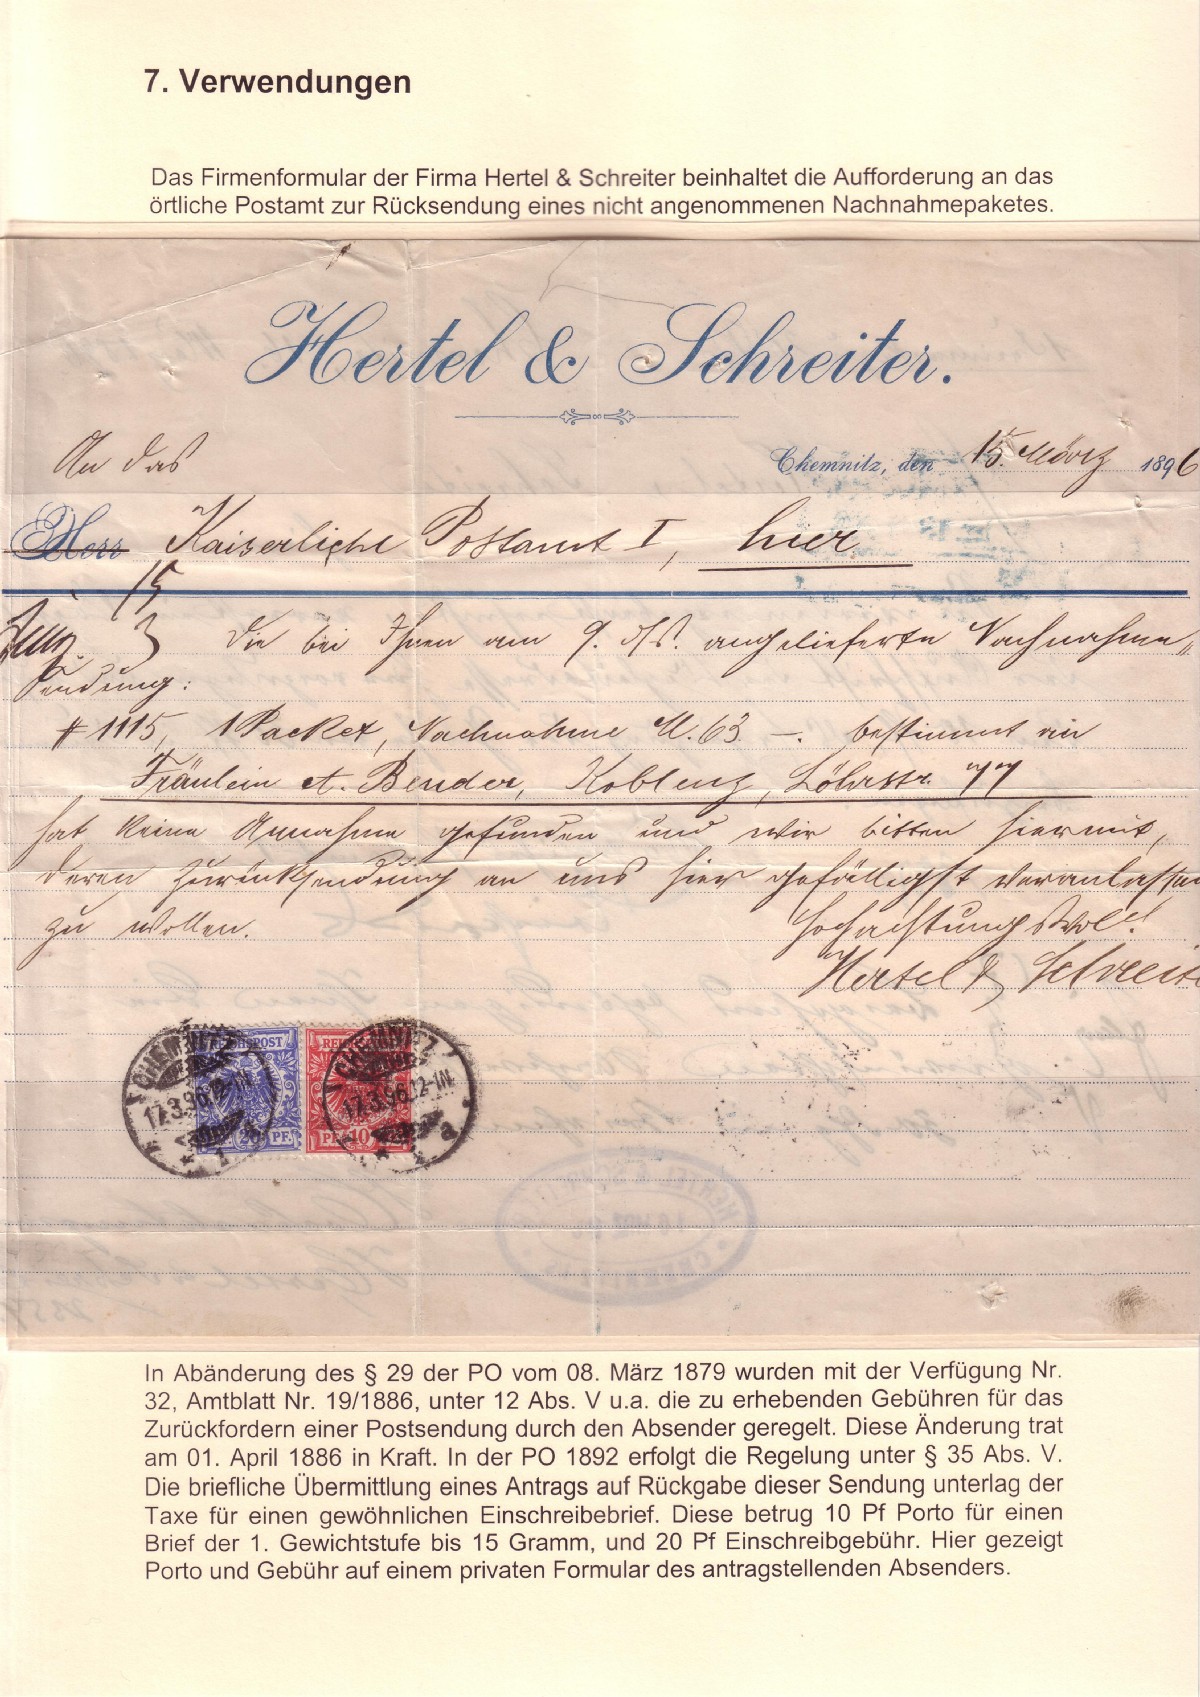 7. Verwendungen
Das Firmenformular der Firma Hertel & Schreiter beinhaltet die Aufforderung an das
örtliche Postamt zur Rücksendung eines nicht angenommenen Nachnahmepaketes.
Hertel & Schreiter.
An das
Chemnitz, den 15. März 1896
Herr Kaiserliche Postamt I, hier
15
3 Die bei Ihnen am 9. ds. angelieferte Nachnahme„
Sendung:
# 1115, 1 Packet, Nachnahme M. 63 –. bestimmt an
Fräulein A. Bender, Koblenz, Löhrstr. 77
hat keine Annahme gefunden und wir bitten hiermit,
deren Zurücksendung an uns hier gefälligst veranlassen
zu wollen.
Hochachtungsvoll!
Hertel & Schreiter
REICHSPOST 20 PF. REICHSPOST PF. 10
CHEMNITZ 17.3.96.12-1N. 1 a
CHEMNITZ 17.3.96.12-1N. 1 a
HERTEL & SCHREITER
CHEMNITZ
In Abänderung des § 29 der PO vom 08. März 1879 wurden mit der Verfügung Nr.
32, Amtblatt Nr. 19/1886, unter 12 Abs. V u.a. die zu erhebenden Gebühren für das
Zurückfordern einer Postsendung durch den Absender geregelt. Diese Änderung trat
am 01. April 1886 in Kraft. In der PO 1892 erfolgt die Regelung unter § 35 Abs. V.
Die briefliche Übermittlung eines Antrags auf Rückgabe dieser Sendung unterlag der
Taxe für einen gewöhnlichen Einschreibebrief. Diese betrug 10 Pf Porto für einen
Brief der 1. Gewichtstufe bis 15 Gramm, und 20 Pf Einschreibgebühr. Hier gezeigt
Porto und Gebühr auf einem privaten Formular des antragstellenden Absenders.